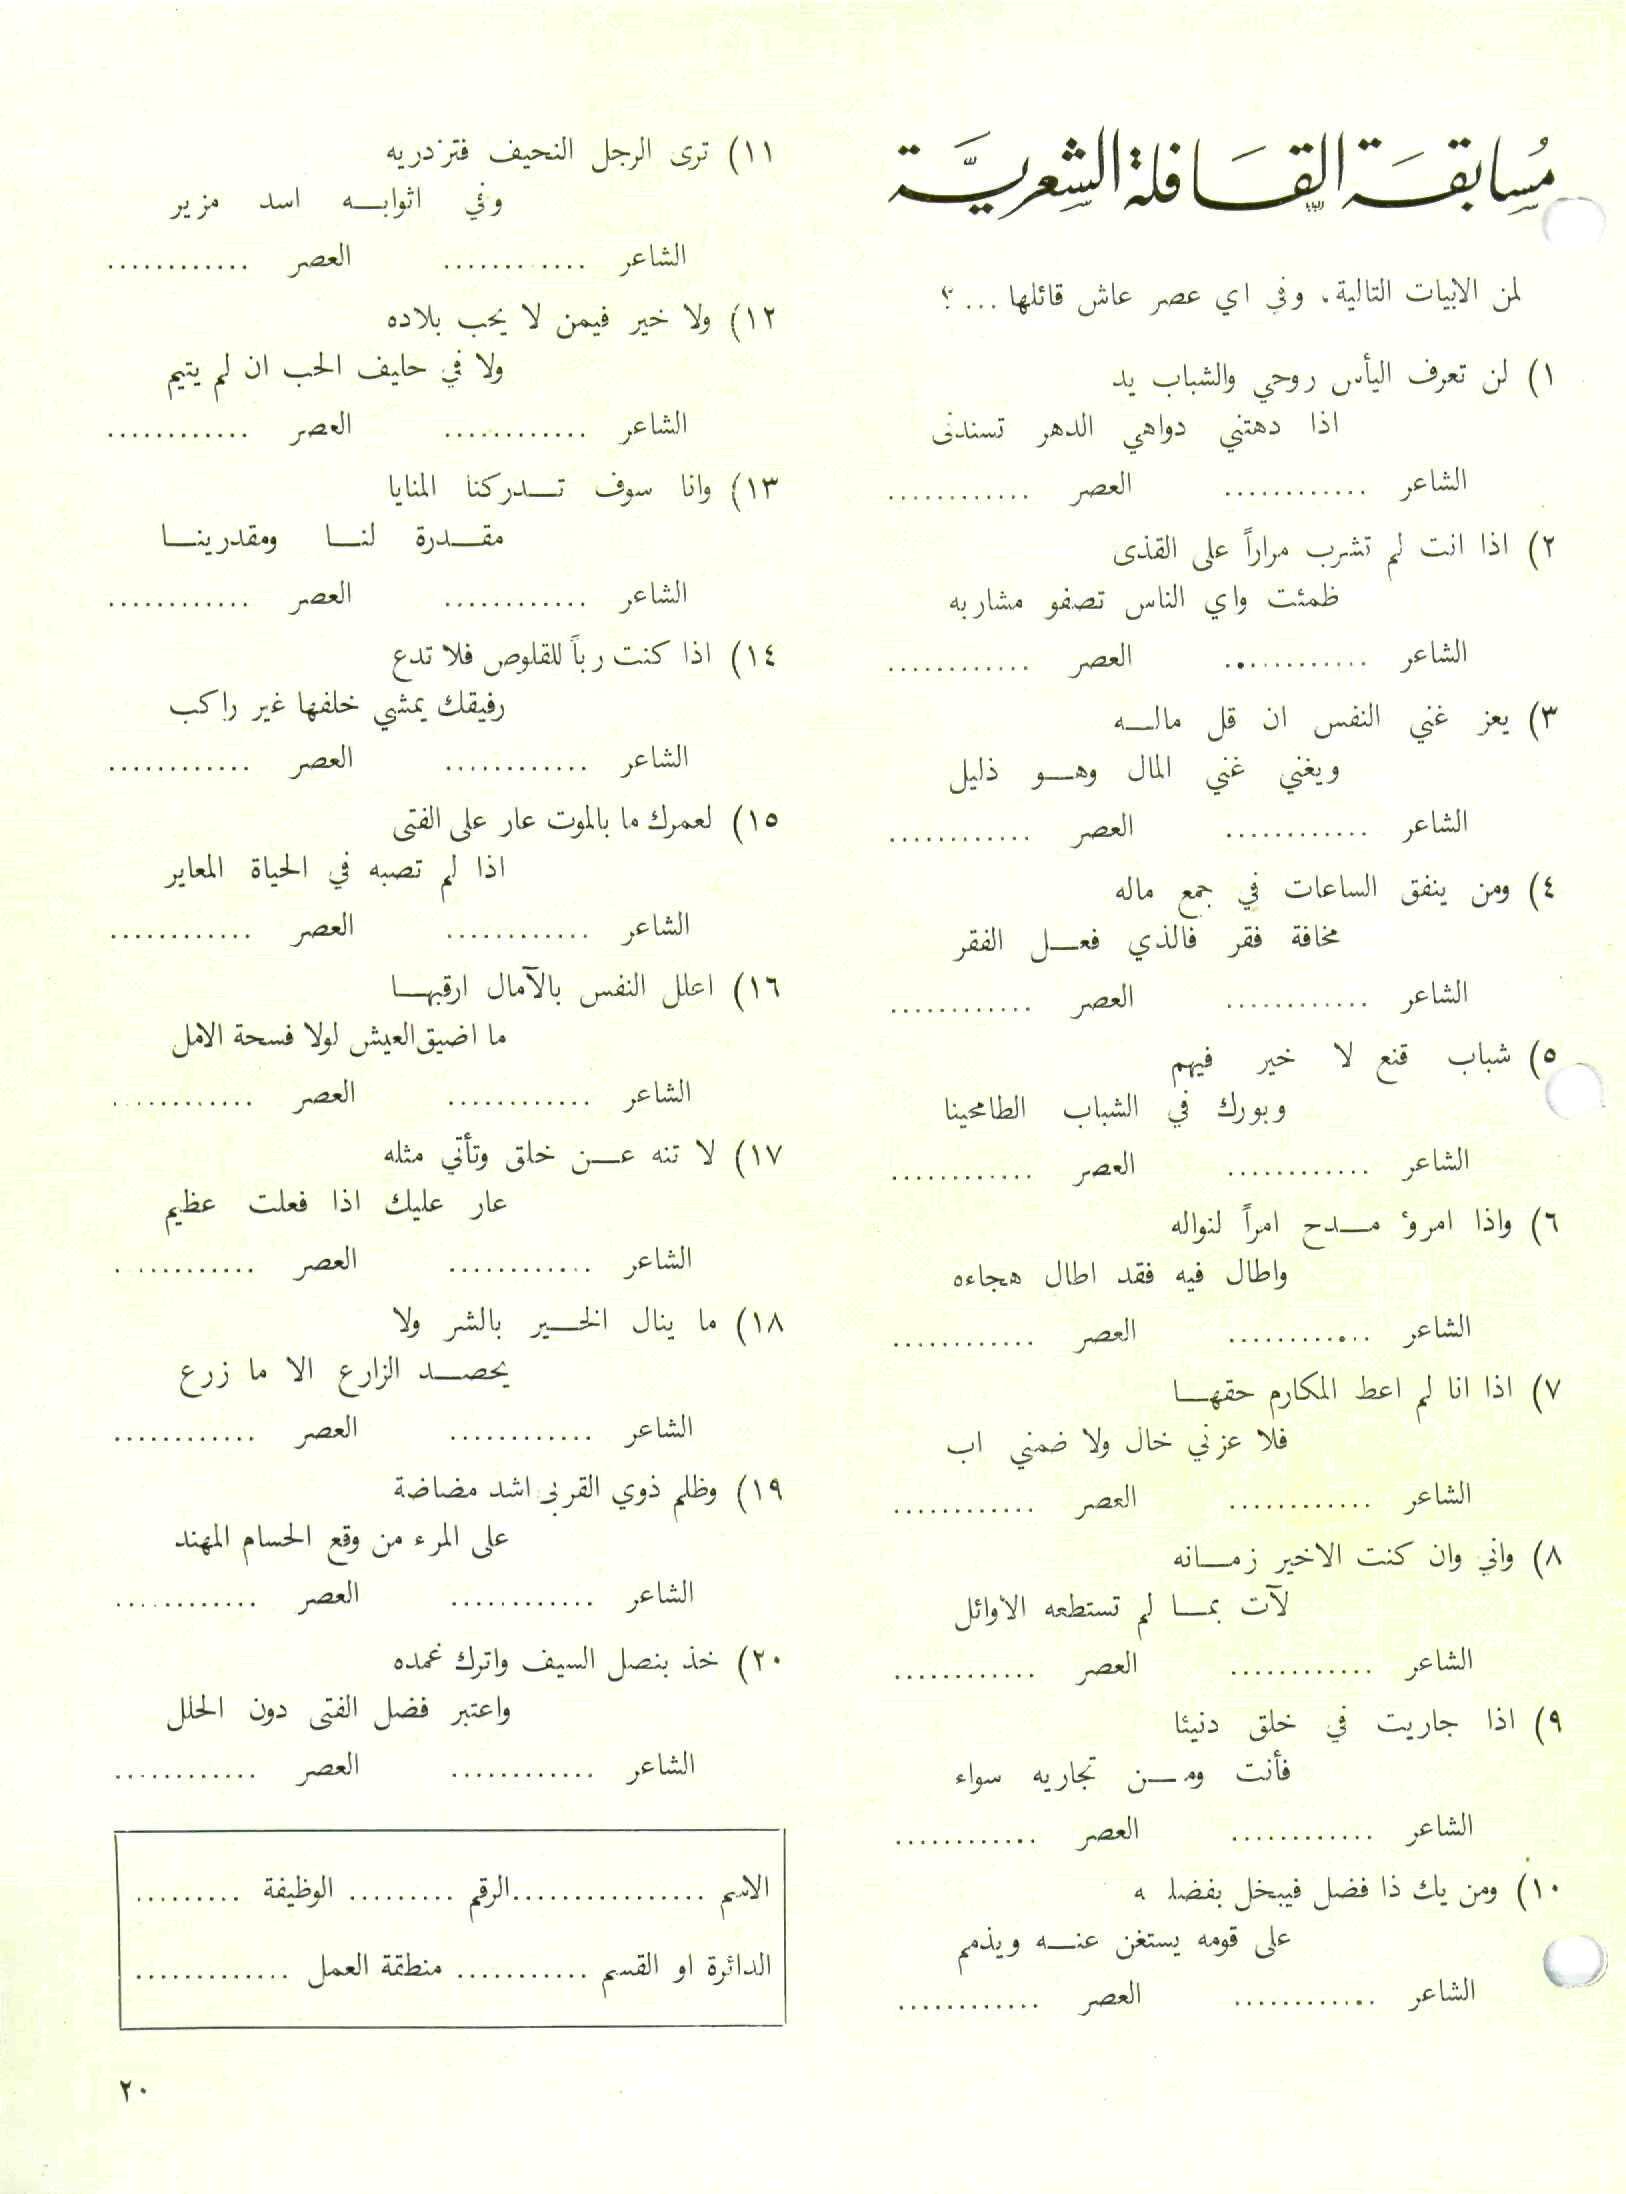 مسابقة القافلة الشعرية
لمن الابيات التالية، وفي اي عصر عاش قائلها ... ؟
١) لن تعرف اليأس روحي والشباب يد
اذا دهتني دواهي الدهر تسندنى
الشاعر ............ العصر ............
٢) اذا انت لم تشرب مراراً على القذى
ظمئت واي الناس تصفو مشاربه
الشاعر ............ العصر ............
٣) يعز غني النفس ان قل مالـــه
ويغني غني المال وهـــو ذليل
الشاعر ............ العصر ............
٤) ومن ينفق الساعات في جمع ماله
مخافة فقر فالذي فعـــل الفقر
الشاعر ............ العصر ............
٥) شباب قنع لا خير فيهم
وبورك في الشباب الطامحينا
الشاعر ............ العصر ............
٦) واذا امرؤ مـــدح امرأً لنواله
واطال فيه فقد اطال هجاءه
الشاعر ............ العصر ............
٧) اذا انا لم اعط المكارم حقهـــا
فلا عزني خال ولا ضمني اب
الشاعر ............ العصر ............
٨) واني وان كنت الاخير زمـــانه
لآت بمـــا لم تستطعه الاوائل
الشاعر ............ العصر ............
٩) اذا جاريت في خلق دنيئا
فأنت ومـــن تجاريه سواء
الشاعر ............ العصر ............
١٠) ومن يك ذا فضل فيبخل بفضله
على قومه يستغن عنـــه ويذمم
الشاعر ............ العصر ............
١١) ترى الرجل النحيف فتزدريه
وفي اثوابـــه اسد مزير
الشاعر ............ العصر ............
١٢) ولا خير فيمن لا يحب بلاده
ولا في حليف الحب ان لم يتيم
الشاعر ............ العصر ............
١٣) وانا سوف تـــدركنا المنايا
مقـــدرة لنـــا ومقدرينـــا
الشاعر ............ العصر ............
١٤) اذا كنت رباً للقلوص فلا تدع
رفيقك يمشي خلفها غير راكب
الشاعر ............ العصر ............
١٥) لعمرك ما بالموت عار على الفتى
اذا لم تصبه في الحياة المعاير
الشاعر ............ العصر ............
١٦) اعلل النفس بالآمال ارقبهـــا
ما اضيق العيش لولا فسحة الامل
الشاعر ............ العصر ............
١٧) لا تنه عـــن خلق وتأتي مثله
عار عليك اذا فعلت عظيم
الشاعر ............ العصر ............
١٨) ما ينال الخـــير بالشر ولا
يحصـــد الزارع الا ما زرع
الشاعر ............ العصر ............
١٩) وظلم ذوي القربى اشد مضاضة
على المرء من وقع الحسام المهند
الشاعر ............ العصر ............
٢٠) خذ بنصل السيف واترك غمده
واعتبر فضل الفتى دون الحلل
الشاعر ............ العصر ............
الاسم ................ الرقم ......... الوظيفة .........
الدائرة او القسم ........... منطقة العمل .............
٢٠